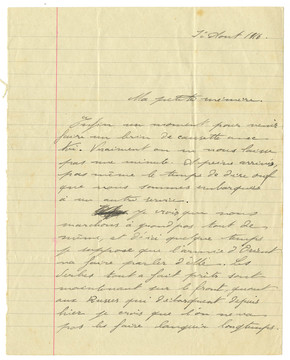 Août 1916
Ma petite mémère
Enfin un moment pour venir
faire un brin de causette avec
toi. Vraiment on ne nous laisse
pas une minute. A peine arrivés
pas même le temps de dire ouf
que nous sommes embarqués
à une autre
je crois que nous
marchons à grand pas tout de
même, et d'ici quelque temps
je suppose que l'armée d'Orient
va faire parler d'elle. Les
Serbes tout à fait prêts sont
maintenant sur le front, quant
aux Russes qui débarquent depuis
hier je crois que l'on ne va
pas les faire languir longtemps.